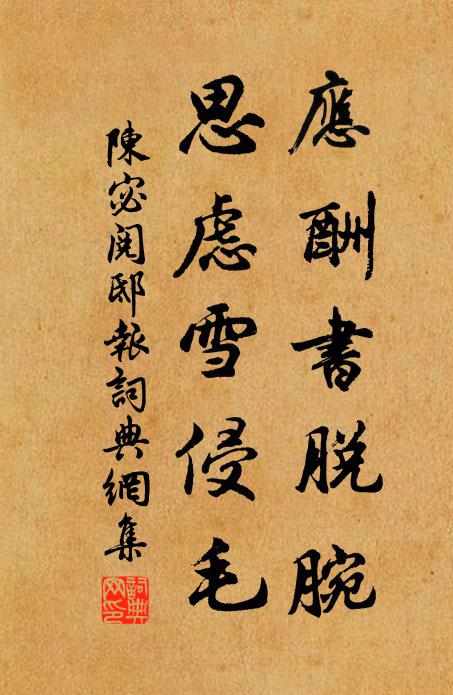 應酬書脫腕
思慮雪侵毛
陳宓閱邸報詞典網集
詞典網印